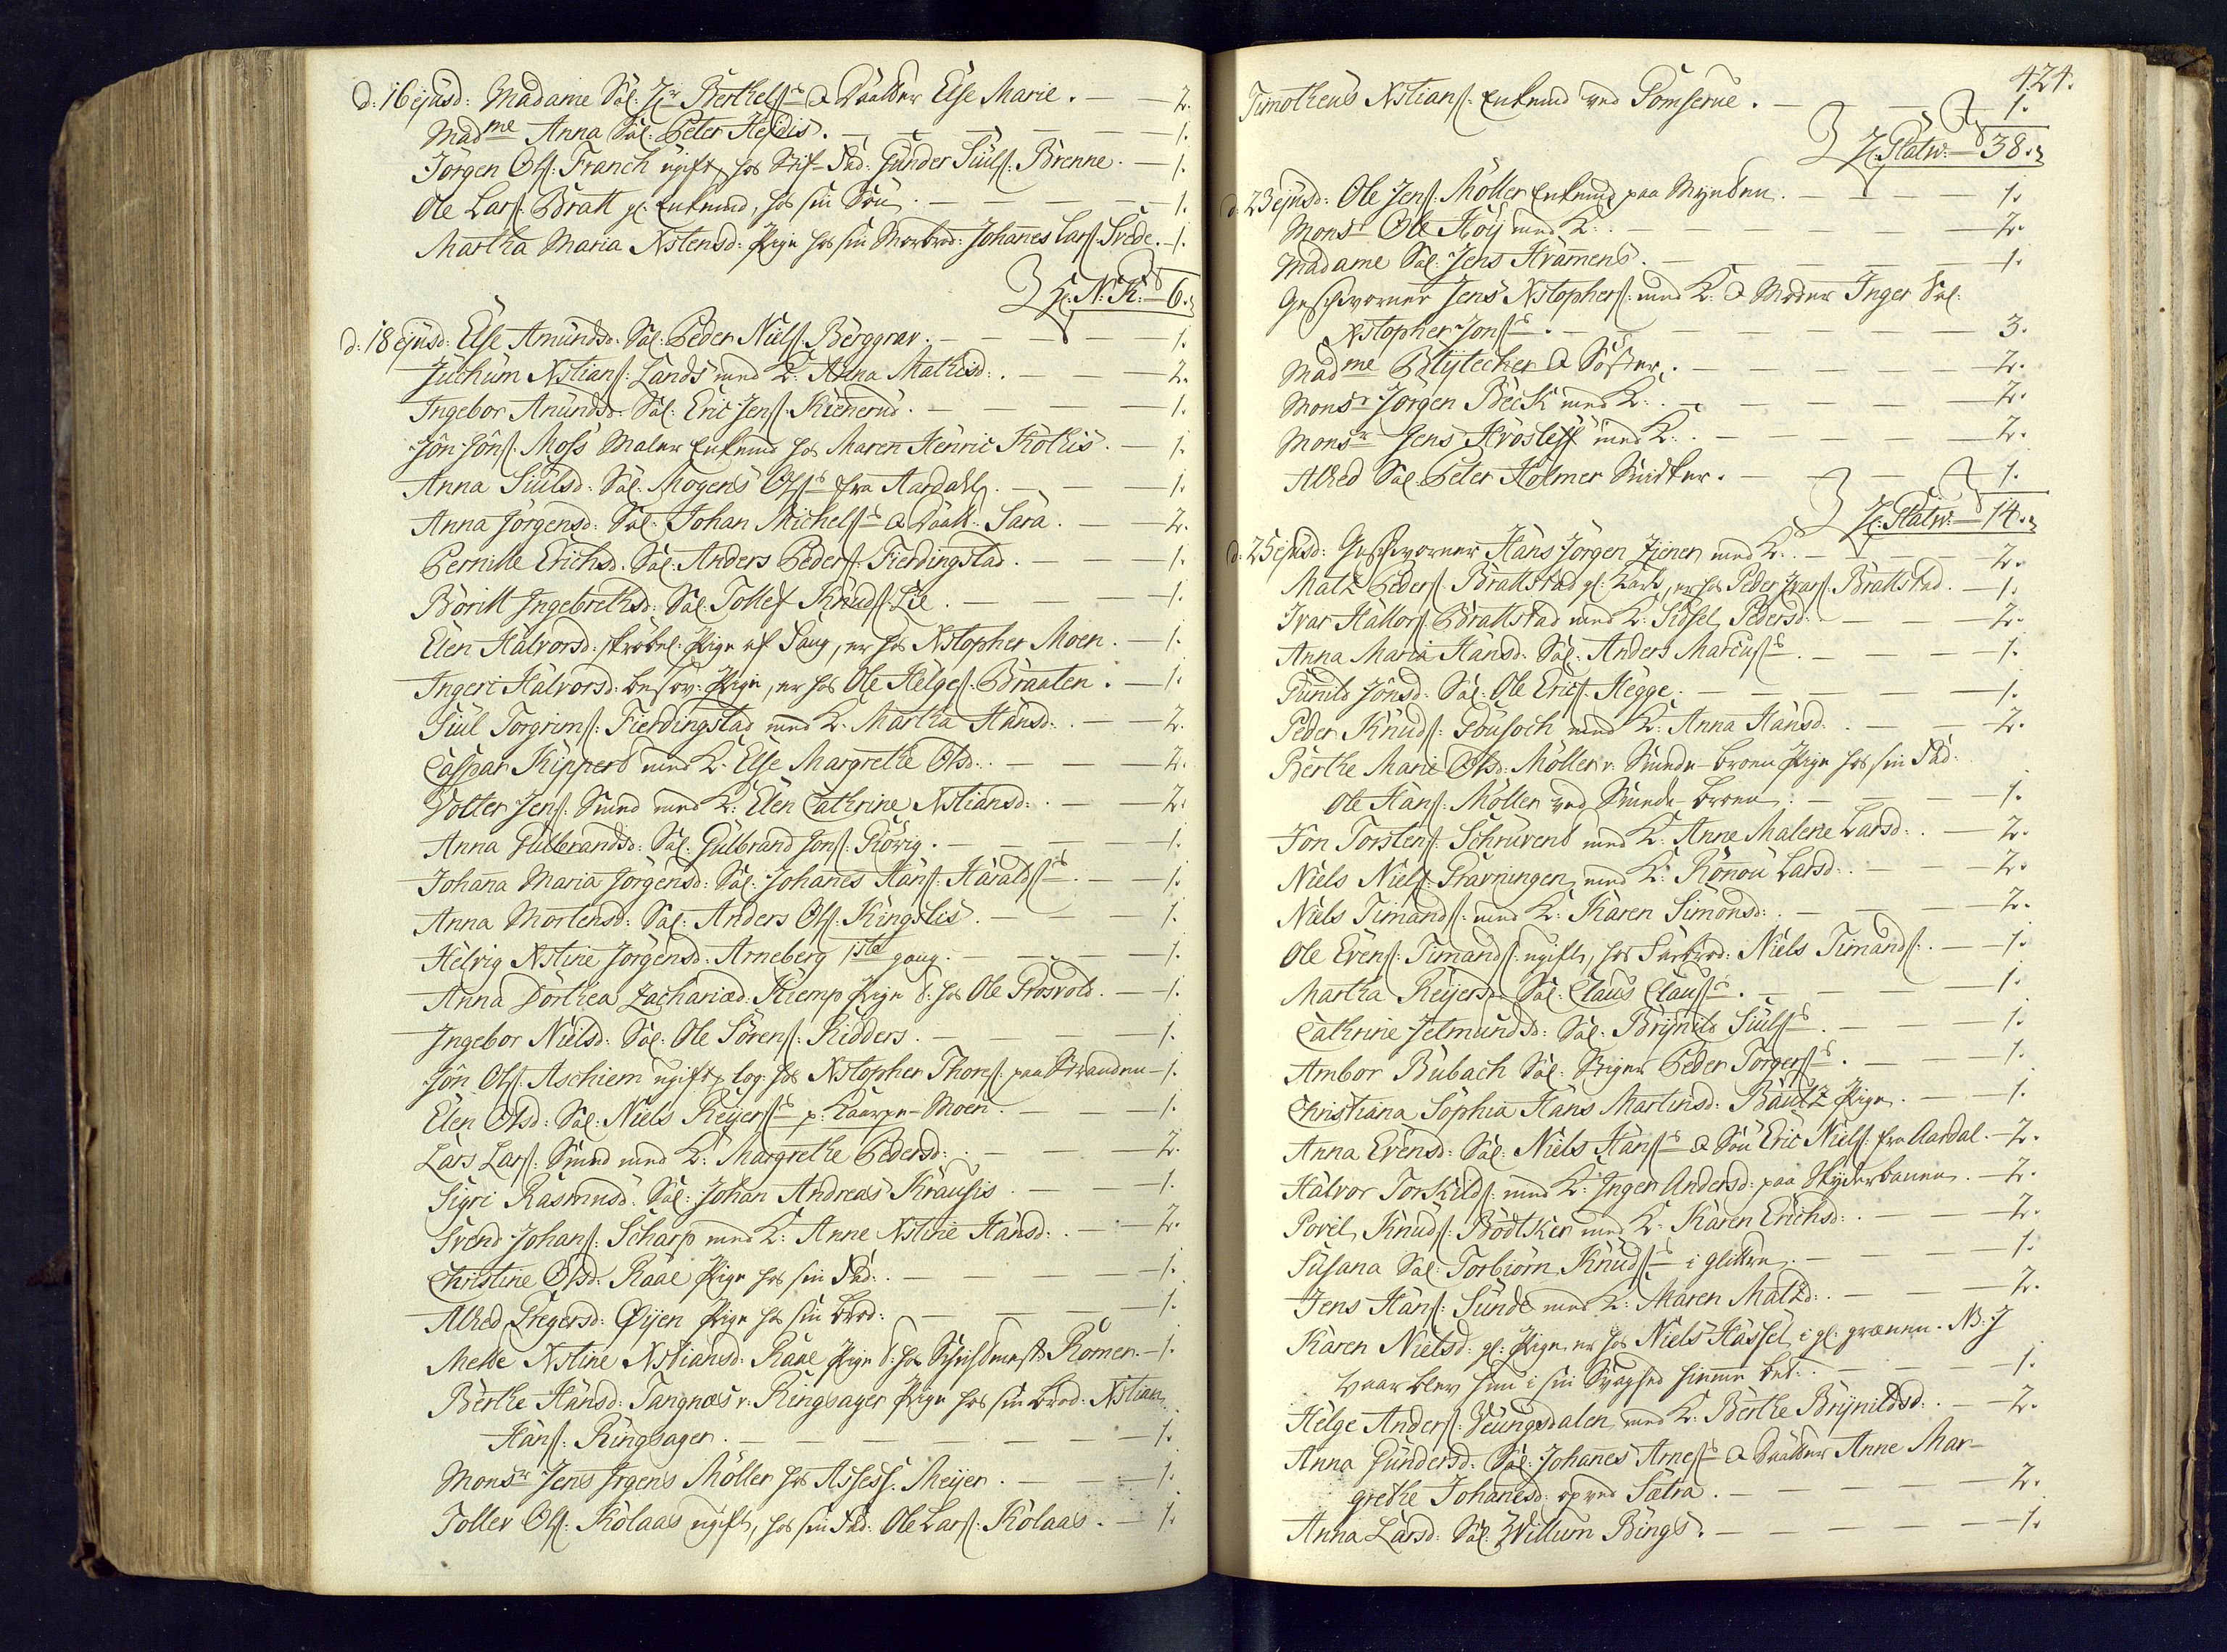 d: 16 ejusd: Madame Sal: Hr Berthelss & Daatter Else Marie. — 2.
Madme Anna Sal: Peter Hejdis. — 1.
Jörgen Ols: Franch ugift, hos Stif-Fad: Gunder Siuls: Brenne. — 1.
Ole Lars: Bratt gl: Enkemd, hos sin Sön. — 1.
Martha Maria Xstensd: Pige hos sin Morbrod: Johanes Lars: Svede. — 1.
H: N: K: — 6.
d: 18 ejusd: Else Amundsd: Sal: Peder Niels: Berggrav. — 1.
Juchum Xstians: Lands med K: Anna Mathisd: — 2.
Ingebor Anundsd: Sal: Eric Jens: Kienerud. — 1.
Jön Jöns: Moss Maler Enkemd hos Maren Henric Kothis. — 1.
Anna Siulsd: Sal: Mogens Olss fra Aardahl. — 1.
Anna Jörgensd: Sal: Johan Michelss & Daatt: Sara. — 2.
Pernille Erichsd: Sal: Anders Peders: Fierdingstad. — 1.
Böritt Ingebrethsd: Sal: Tollef Knuds: Lie. — 1.
Elen Halvorsd: skröbel: Pige af Saug, er hos Xstopher Moen. — 1.
Ingeri Halvorsd: besov: Pige, er hos Ole Helges: Braaten. — 1.
Siul Torgrims: Fierdingstad med K: Martha Hansd: — 2.
Caspar Kippers med K: Else Margrethe Olsd: — 2.
Volter Jens: Smed med K: Elen Cathrine Xstiansd: — 2.
Anna Gulbrandsd: Sal: Gulbrand Jons: Körig. — 1.
Johana Maria Jörgensd: Sal: Johanes Hans: Haraldss. — 1.
Anna Mortensd: Sal: Anders Ols: Kingslis. — 1.
Helvig Xstine Jörgensd: Arneberg 1ste gang. — 1.
Anna Dorthea Zachariæd: Kiemp Pige t: hos Ole Prosvold. — 1.
Ingebor Nielsd: Sal: Ole Sörens: Ridders. — 1.
Jön Ols: Aschiem ugift, log: hos Xstopher Thores: paa Stranden — 1.
Elen Olsd: Sal: Niels Reyerss p: Kaarpe-Moen. — 1.
Lars Lars: Smed med K: Margrethe Pedersd: — 2.
Sigri Rasmusd: Sal: Johan Andreas Krausis. — 1.
Svend Johans: Scharp med K: Anne Xstine Hansd: — 2.
Christine Olsd: Raae Pige hos sin Fad: — 1.
Alhed Gregersd: Öijen Pige hos sin brod: — 1.
Mette Xstine Xstiansd: Raae Pige t: hos Schichtmestr Römer. — 1.
Berthe Hansd: Tangnæs v: Ringsager Pige hos sin brod: Xstian
Hans: Ringsager. — 1.
Monsr Jens Jrgens Möller hos Assess: Meyer. — 1.
Tollev Ols: Kölaas ugift, hos sin Fad: Ole Lars: Kölaas. — 1.
424.
Timotheus Xstians: Enkemd ved Pomserue. — 1.
H: Platw: — 38.
d: 23 ejusd: Ole Jens: Möller Enkemd paa Mynten. — 1.
Monsr Ole Höij med K: — 2.
Madame Sal: Jens Kramens. — 1.
Geschworner Jens Xstophers: med K: & Moder Inger Sal:
Xstopher Jonss. — 3.
Madme Blytecher & Söster. — 2.
Monsr Jörgen Beck med K: — 2.
Monsr Jens Kröslef med K: — 2.
Alhed Sal: Peter Holmer Snidker. — 1.
H: Platw: — 14.
d: 25 ejusd: Geschworner Hans Jörgen Ziener med K: — 2.
Matz Peders: Brattstad gl: Karl, er hos Peder Ivars: Brattstad. — 1.
Ivar Hallvors: Brattstad med K: Sidsel Pedersd: — 2.
Anna Maria Hansd: Sal: Anders Marcuss. — 1.
Gunild Jönsd: Sal: Ole Erics: Hegge. — 1.
Peder Knuds: Fousoch med K: Anna Hansd: — 2.
Berthe Marie Olsd: Möller v: Smede-broen Pige hos sin Fad:
Ole Hans: Möller ved Smede-broen. — 1.
Jon Torstens: Schruvens med K: Anne Malene Larsd: — 2.
Niels Niels: Gravningen med K: Rönou Larsd: — 2.
Niels Timands: med K: Karen Simonsd: — 2.
Ole Evens: Timands: ugift, hos Farbrod: Niels Timands: — 1.
Martha Reijersd: Sal: Claus Clauss. — 1.
Cathrine Jelmundsd: Sal: Brynild Siulss. — 1.
Ambor Bubach Sal: Stiger Peder Torgerss. — 1.
Christiana Sophia Hans Martinsd: Bautz Pige. — 1.
Anna Evensd: Sal: Niels Hanss & Sön Eric Niels: fra Aardal. — 2.
Halvor Torkilds: med K: Inger Andersd: paa Skyderbanen. — 2.
Povel Knuds: Bödtker med K: Karen Erichsd: — 2.
Susana Sal: Torbiörn Knudss i glitten. — 1.
Jens Hans: Sunde med K: Maren Matzd: — 2.
Karen Nielsd: gl: Pige, er hos Niels Hassel i gl: grænen. NB: I
Vaar blev hun i sin Svaghed hieme bet: — 1.
Helge Anders: Veungsdalen med K: Berthe Brynildsd: — 2.
Anna Gundersd: Sal: Johanes Arness & Daatter Anne Mar-
grethe Johanesd: op ved Sætra. — 2.
Anna Larsd: Sal: Willum Bings. — 1.